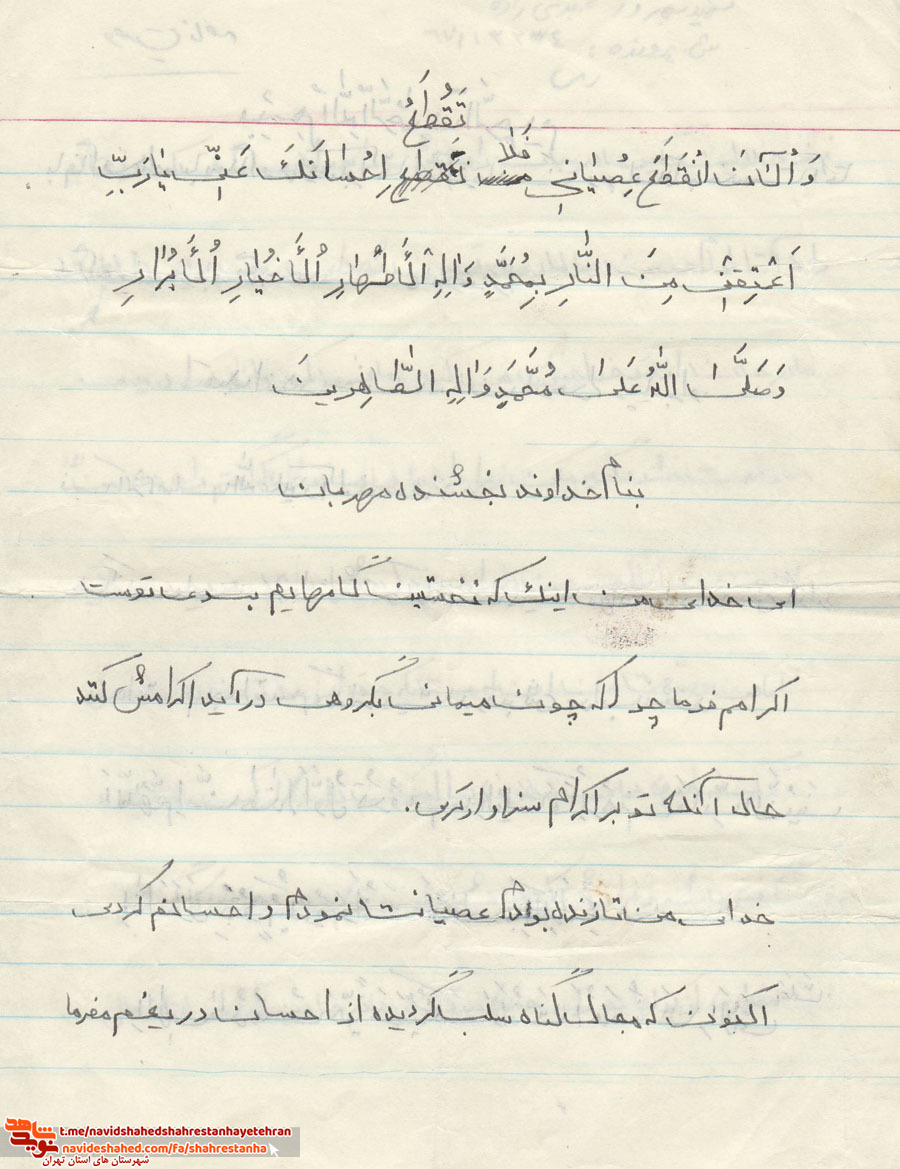 تَقْطَعْ
وَ الْآنَ انْقَطَعَ عِصْیٰانی فَلاٰ تَقْطَعْ اِحْسٰانَکَ عَنّی یٰارَبِّ
اَعْتِقْنی مِنَ النّٰارِ بِمُحَمَّدٍ وَ اٰلِهِ الْاَطْهٰارِ الْاَخْیٰارِ الْاَبْرٰارِ
وَ صَلَّی اللّٰهُ عَلیٰ مُحَمَّدٍ وَ اٰلِهِ الطّٰاهِرینَ
بنام خداوند بخشنده مهربان
ای خدای من اینک که نخستین گامهایم بسوی توست
اکرامم فرما چرا که چون میهمانی بگروهی درآید اکرامش کنند
حال آنکه تو بر اکرام سزاوارتری.
خدای من تا زنده بودم عصیانت نمودم و احسانم کردی
اکنون که مجال گناه سلب گردیده از احسان دریغم مفرما
t.me/navidshahedshahrestanhayetehran
navideshahed.com/fa/shahrestanha
شهرستان های استان تهران
نوید شاهد